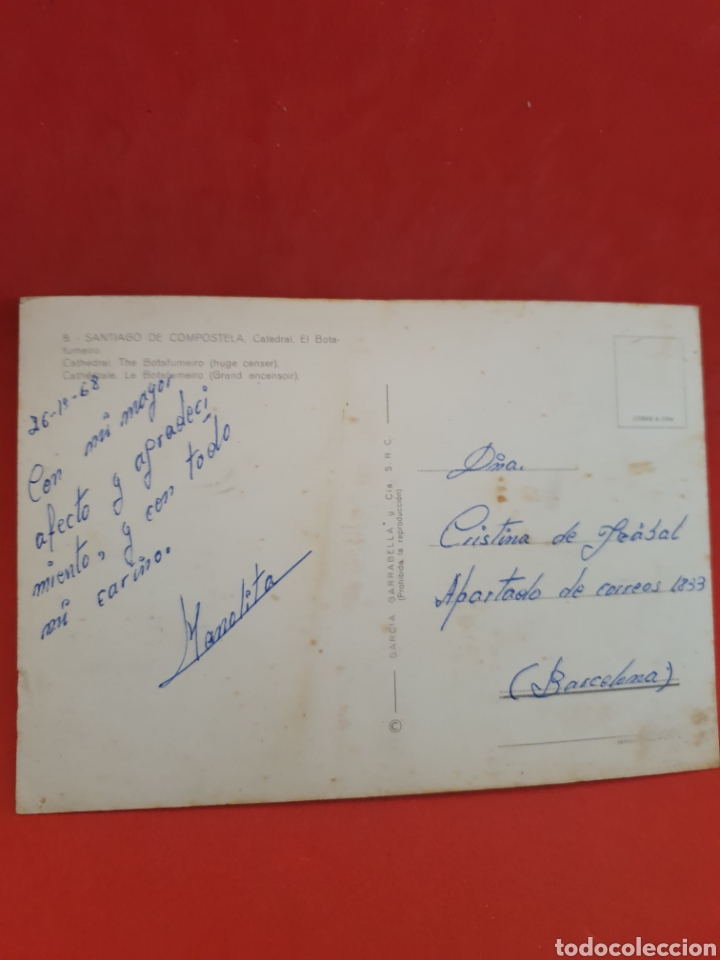 8. - SANTIAGO DE COMPOSTELA. Catedral. El Bota-
fumeiro.
Cathedral. The Botafumeiro (huge censer).
Cathédrale. Le Botafumeiro (Grand encensoir).
68
Con mi mayor
afecto y agradeci
miento, y con todo
mi cariño.
Manolita
© GARCIA GARRABELLA y Cía. S.R.C.
(Prohibida la reproducción)
Dña.
Cristina de
Apartado de correos 1833
(Barcelona)
todocoleccion